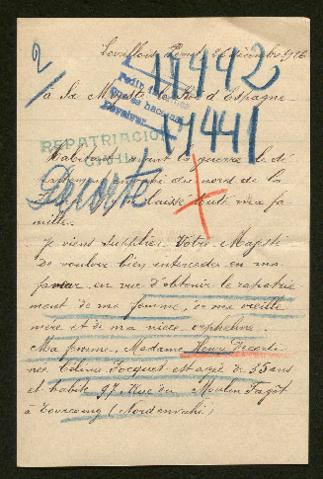 2/
Levallois Perret 26 décembre 1916
11992
à Sa Majesté le Roi d'Espagne
17441
REPATRIACION
CIVIL
Habitant avant la guerre le dé
du nord de la
laissé toute ma fa
mille.
Je viens supplier Votre Majesté
de vouloir bien intercéder en ma
faveur, en vue d'obtenir le rapatrie
ment de ma femme, de ma vieille
mère et de ma nièce orpheline.
Ma femme, Madame Henri
née Jocquet est agée de 35 ans
et habite 97 Rue du Moulin Fagot
à Tourcoing (Nord envahi)